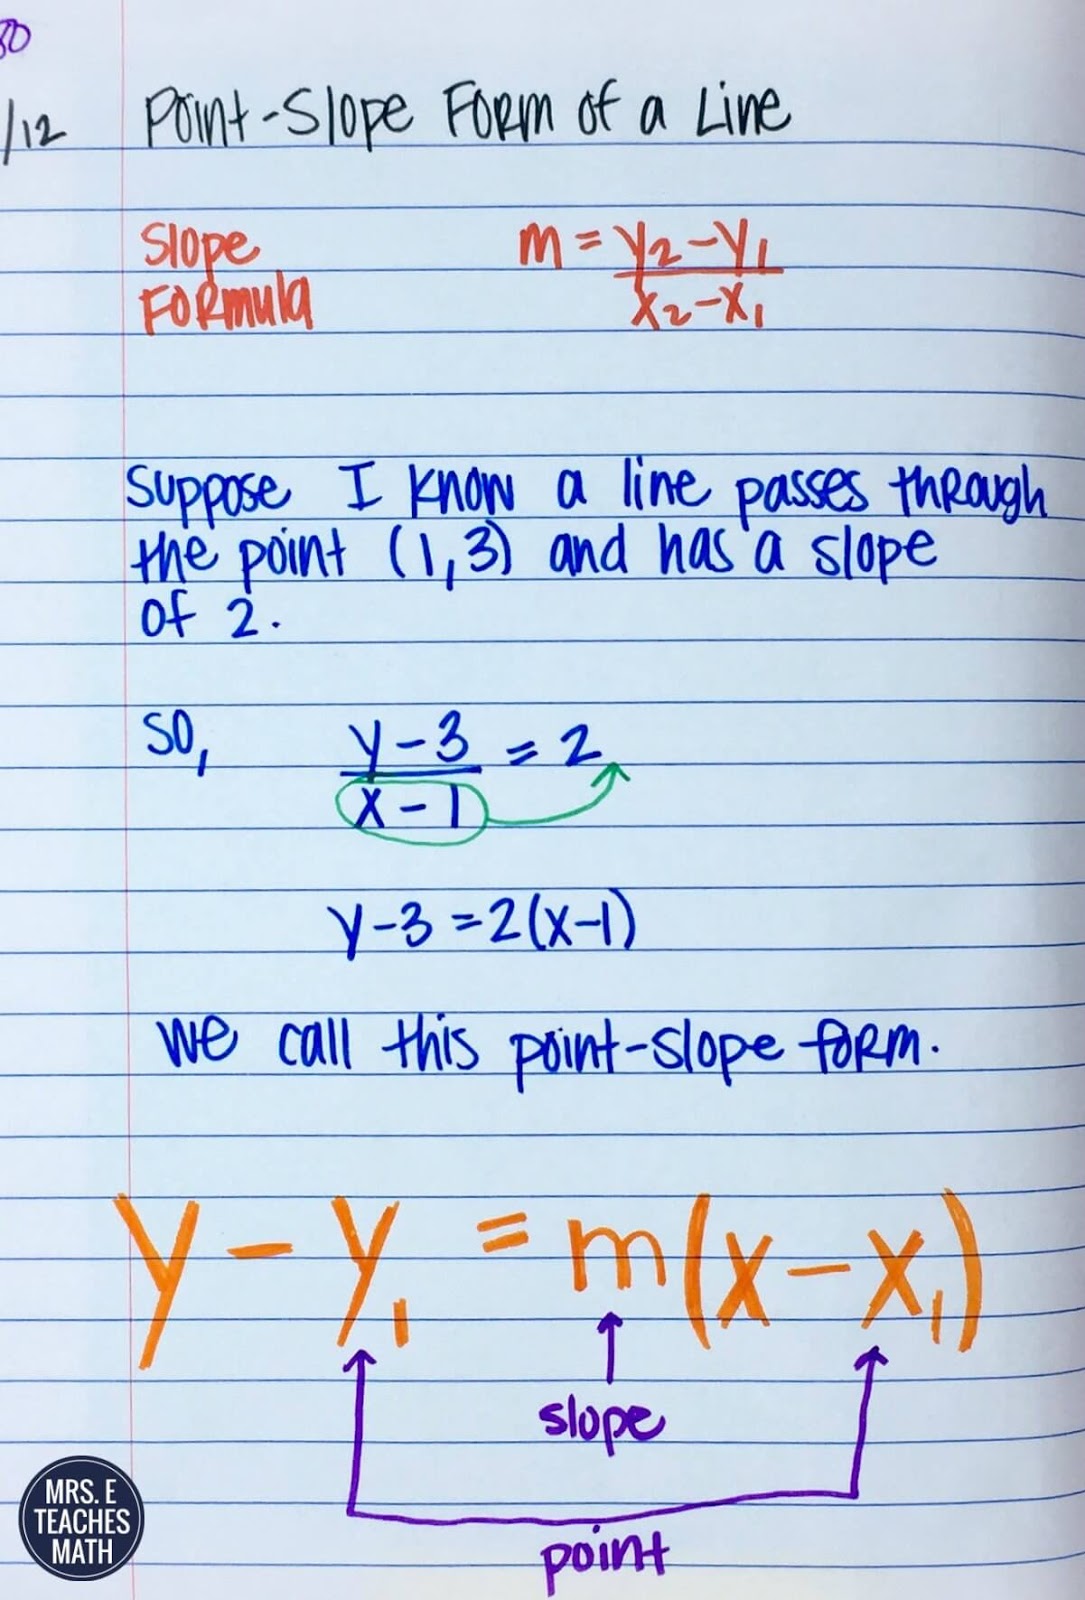 80
/12 Point-Slope Form of a Line
Slope m = y₂-y₁
Formula x₂-x₁
Suppose I know a line passes through
the point (1,3) and has a slope
of 2.
So, y-3 = 2
x-1
y-3=2(x-1)
We call this point-slope form.
y - y₁ = m(x-x₁)
slope
point
MRS. E
TEACHES
MATH